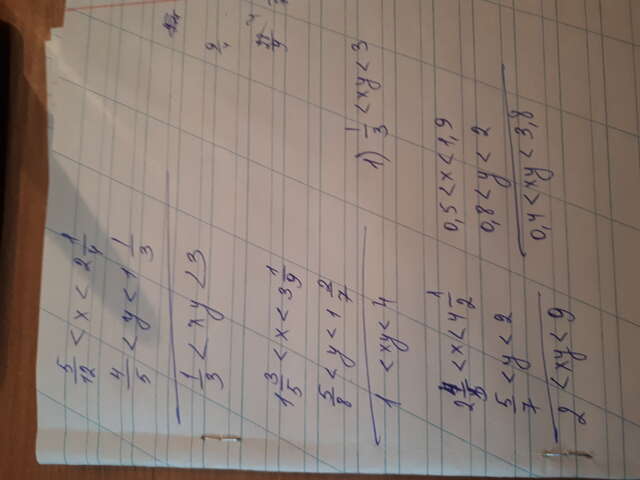 5/12 < x < 2 1/4
4/5 < y < 1 1/3
1/3 < xy < 3
1 3/5 < x < 3 1/9
5/8 < y < 1 2/7
1 < xy < 4
1) 1/3 < xy < 3
2 4/5 < x < 4 1/2
5/7 < y < 2
2 < xy < 9
0,5 < x < 1,9
0,8 < y < 2
0,4 < xy < 3,8
9/4